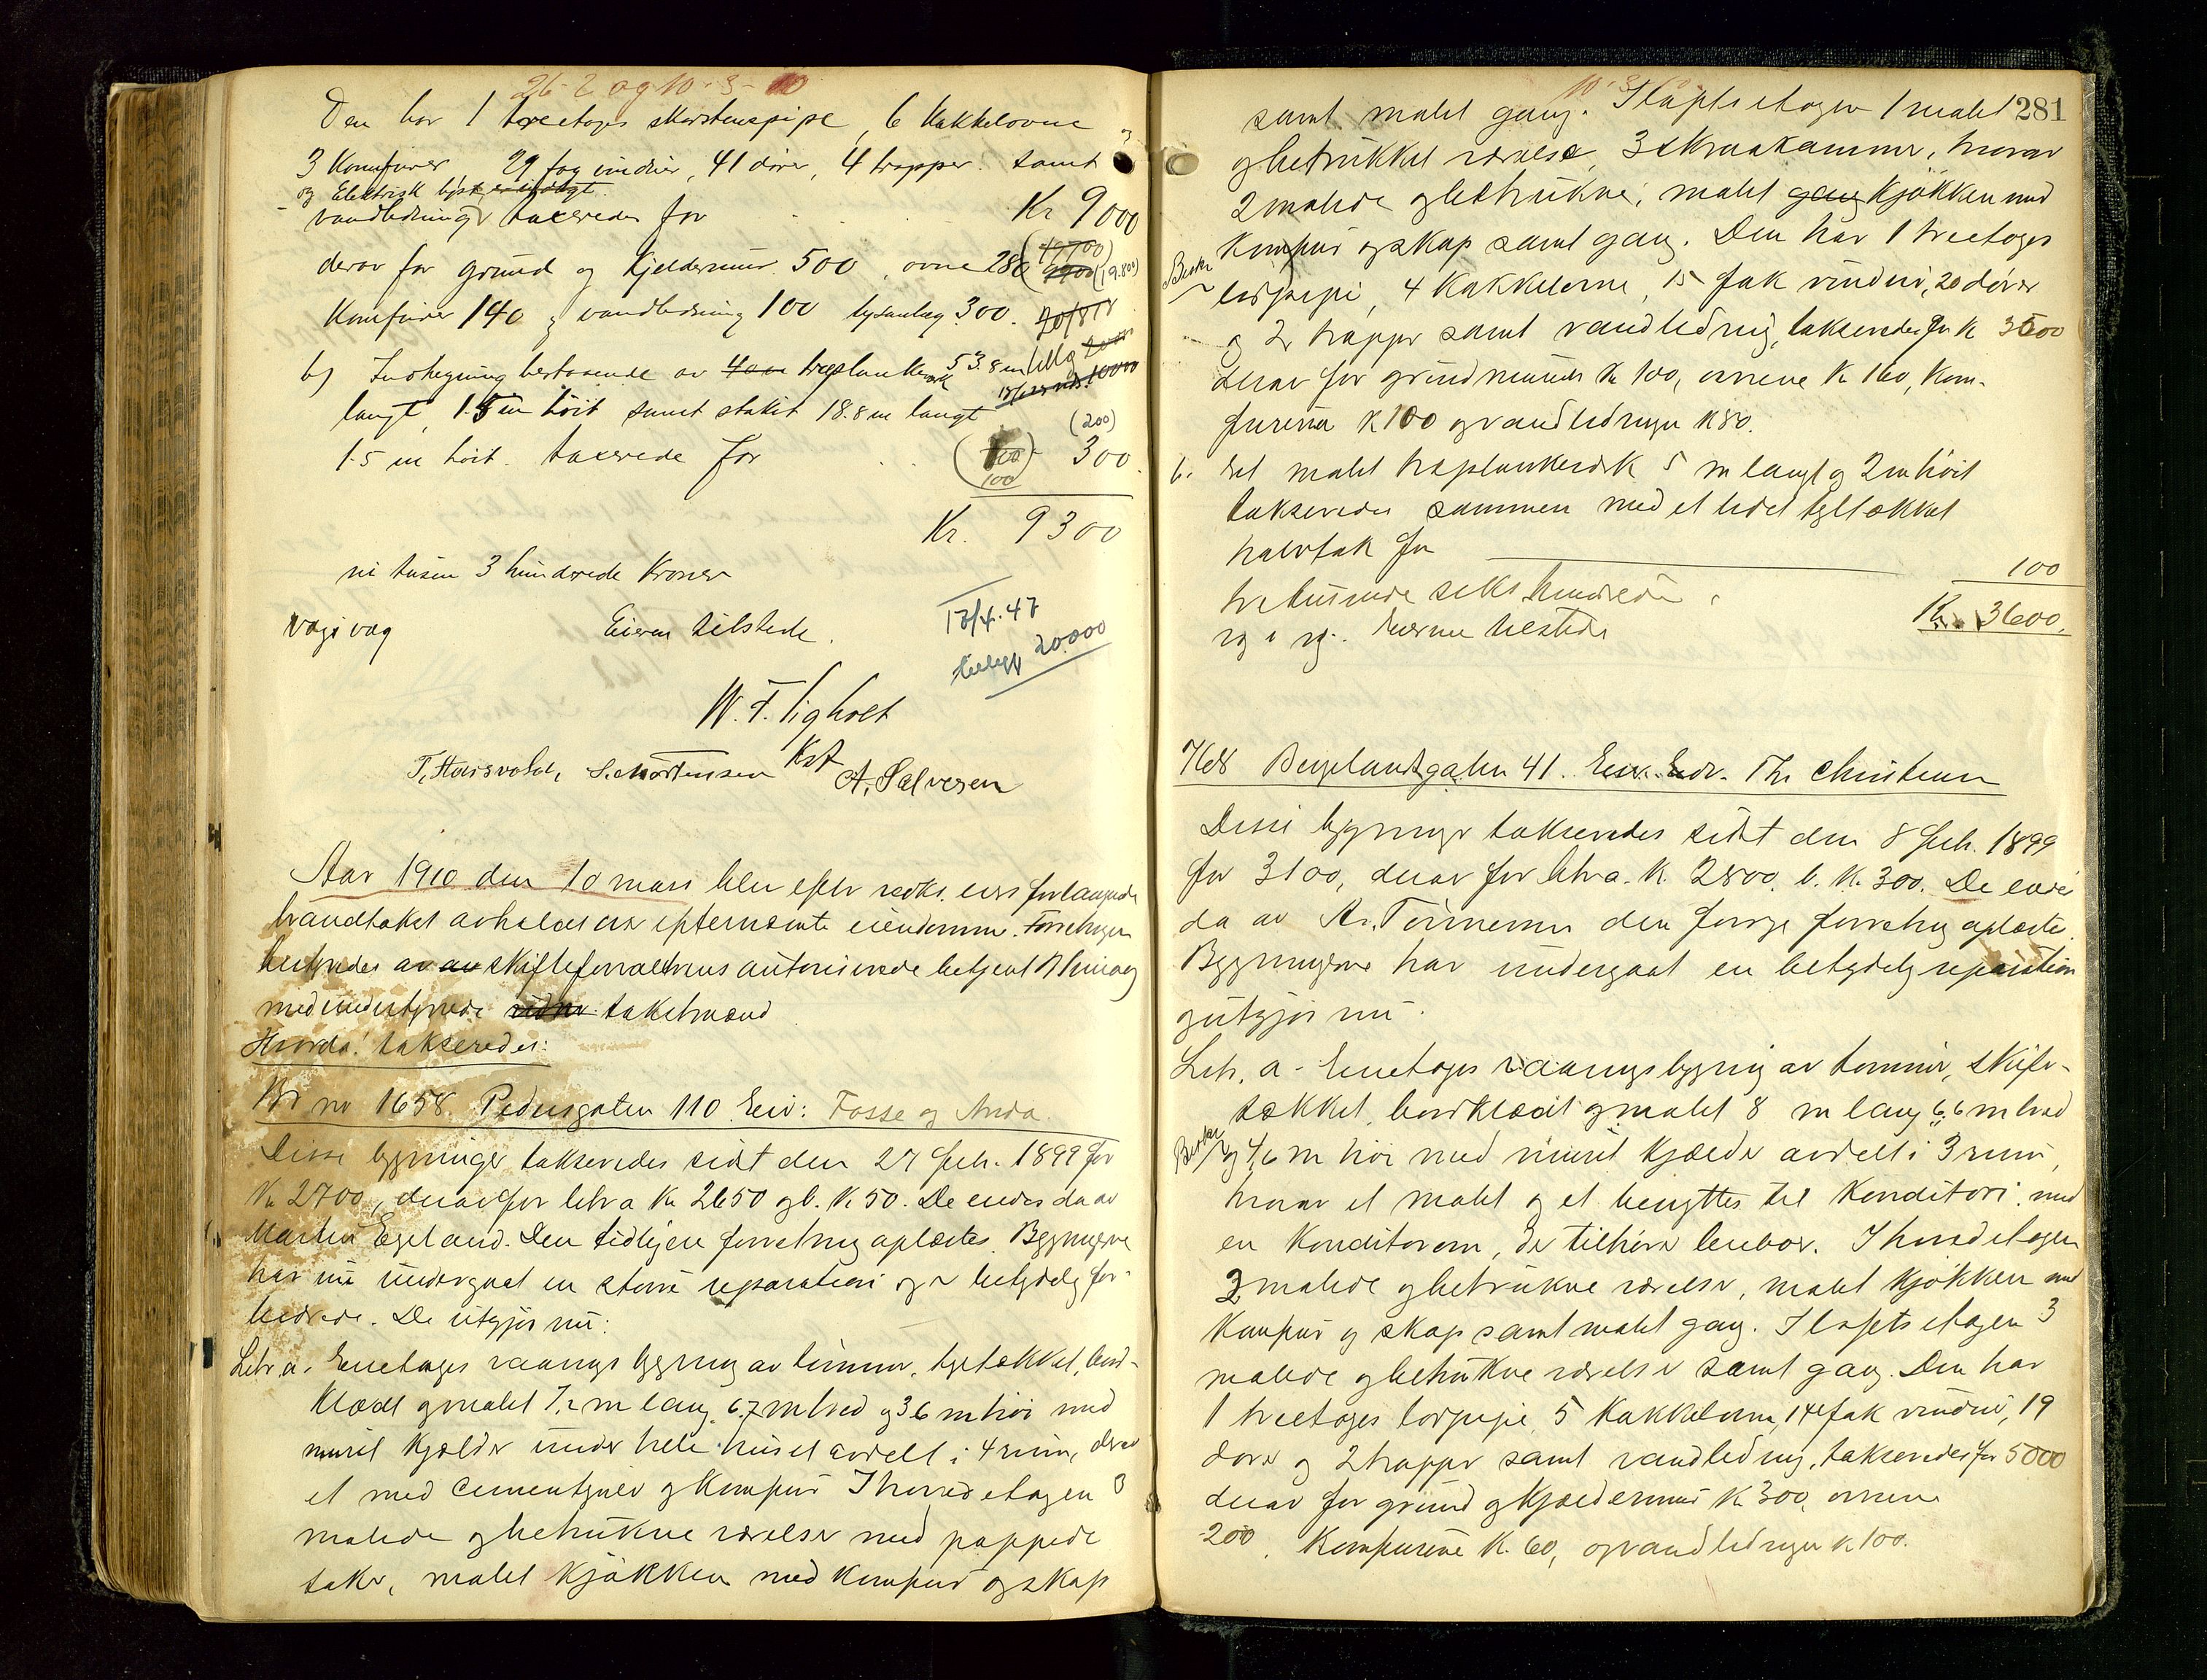 26-2 og 10-3-10
Den har 1 toetages skorstenspipe, 6 kakkelovne
3 Komfurer 29 fag vinduer, 41 døre, 4 trapper samt
og Elektrisk lyst er indlagt.
vandledning taxeredes for Kr 9000
derav for grund og Kjeldermur 500, ovne 280 (19700) 9900 (19.800)
Komfurer 140 og vandledning 100 lysanlæg 300.
b) Indhegning bestaaende av træplankeværk 53.8 m
langt, 1.5 m høit samt stakit 18.8 m langt
(200)
1.5 m høit. taxerede for (100) 300
100
Kr. 9300
ni tusen 3 hundrede Kroner
Vag i vag Eieren tilstede.
13/4.47
tillegg 20.000
W. F. Tigholt
Kst
T. Hausvold, S. Mortensen A. Salvesen
Aar 1910 den 10 mars blev efter vedk. eiers forlangende
brandtakst avholdt over efternævnte eiendomme. Forretningen
bestyredes av av skifteforvalterens autoriserede betjent
med undertegnede takstmænd
Hvorda! takseredes:
Br no 1658 Pedersgaten 110 Eier: Fosse og Anda.
Disse bygninger takseredes sidst den 27 feb. 1899 for
Kr 2700, derav for litra a Kr 2650 og b. Kr 50. De eiedes da av
Martin Egeland. Den tidligere forretning oplæstes. Bygningerne
har nu undergaat en større reparation og er betydelig for-
bedrede. De utgjør nu:
Litr a. Enetages vaaningsbygning av tømmer, tegltækket, bord-
klædt og malet 7,2 m lang 6,7 m bred og 3,6 m høi med
muret kjælder under hele huset avdelt i 4 rum, derav
et med cementgulv og komfur I hovedetagen 3
malede og betrukne værelser med pappede
taker, malet kjøkken med komfur og skap
10-3-10
281
samt malet gang. I loftsetagen 1 malet
og betrukket værelse, 3 skraakammer, hvorav
2 malede og betrukne, malet gang kjøkken med
komfur og skap samt gang. Den har 1 treetages
Beskr
teglpipe, 4 kakkelovne, 15 fak vinduer, 20 dører
og 2 trapper samt vandledning, takseredes for K 3500
derav for grundmuren Kr 100, ovnene Kr 160, Kom-
furerna K 100 og vandledningen K 80.
b. Et malet træplankeværk 5 m langt og 2 m høit
takseredes sammen med et lidet tegltækket
halvtak for 100
tretusinde seks hundrede Kr. 3600.
vg i vg. Eierne tilstede
768 Bergelandsgaten 41. Eier: Edv. Th. Christensen
Disse bygninger takseredes sidst den 8 feb. 1899
for 3100, derav for litra a. K. 2800, b. K. 300. De eiedes
da av den forrige forretning oplæstes.
Bygningerne har undergaat en betydelig reparation
og utgjør nu.
Litr. a - Enetages vaaningsbygning av tømmer, skifer-
tækket, bordklædt og malet 8 m lang 6,6 m bred
Beskr
og 4,6 m høi med muret kjælder avdelt i 3 rum,
hvorav et malet og et benyttes til Konditori med
en Konditorovn, der tilhører leiebor. I hovedetagen
3 malede og betrukne værelser, malet kjøkken med
komfur og skap samt malet gang. I loftsetagen 3
malede og betrukne værelser samt gang. Den har
1 treetages teglpipe, 5 kakkelovne, 14 fak vinduer, 19
dører og 2 trapper samt vandledning, takseredes for 5000
derav for grund og kjældermur K. 300, ovnene
200, Komfurene K. 60, og vandledningen K. 100.